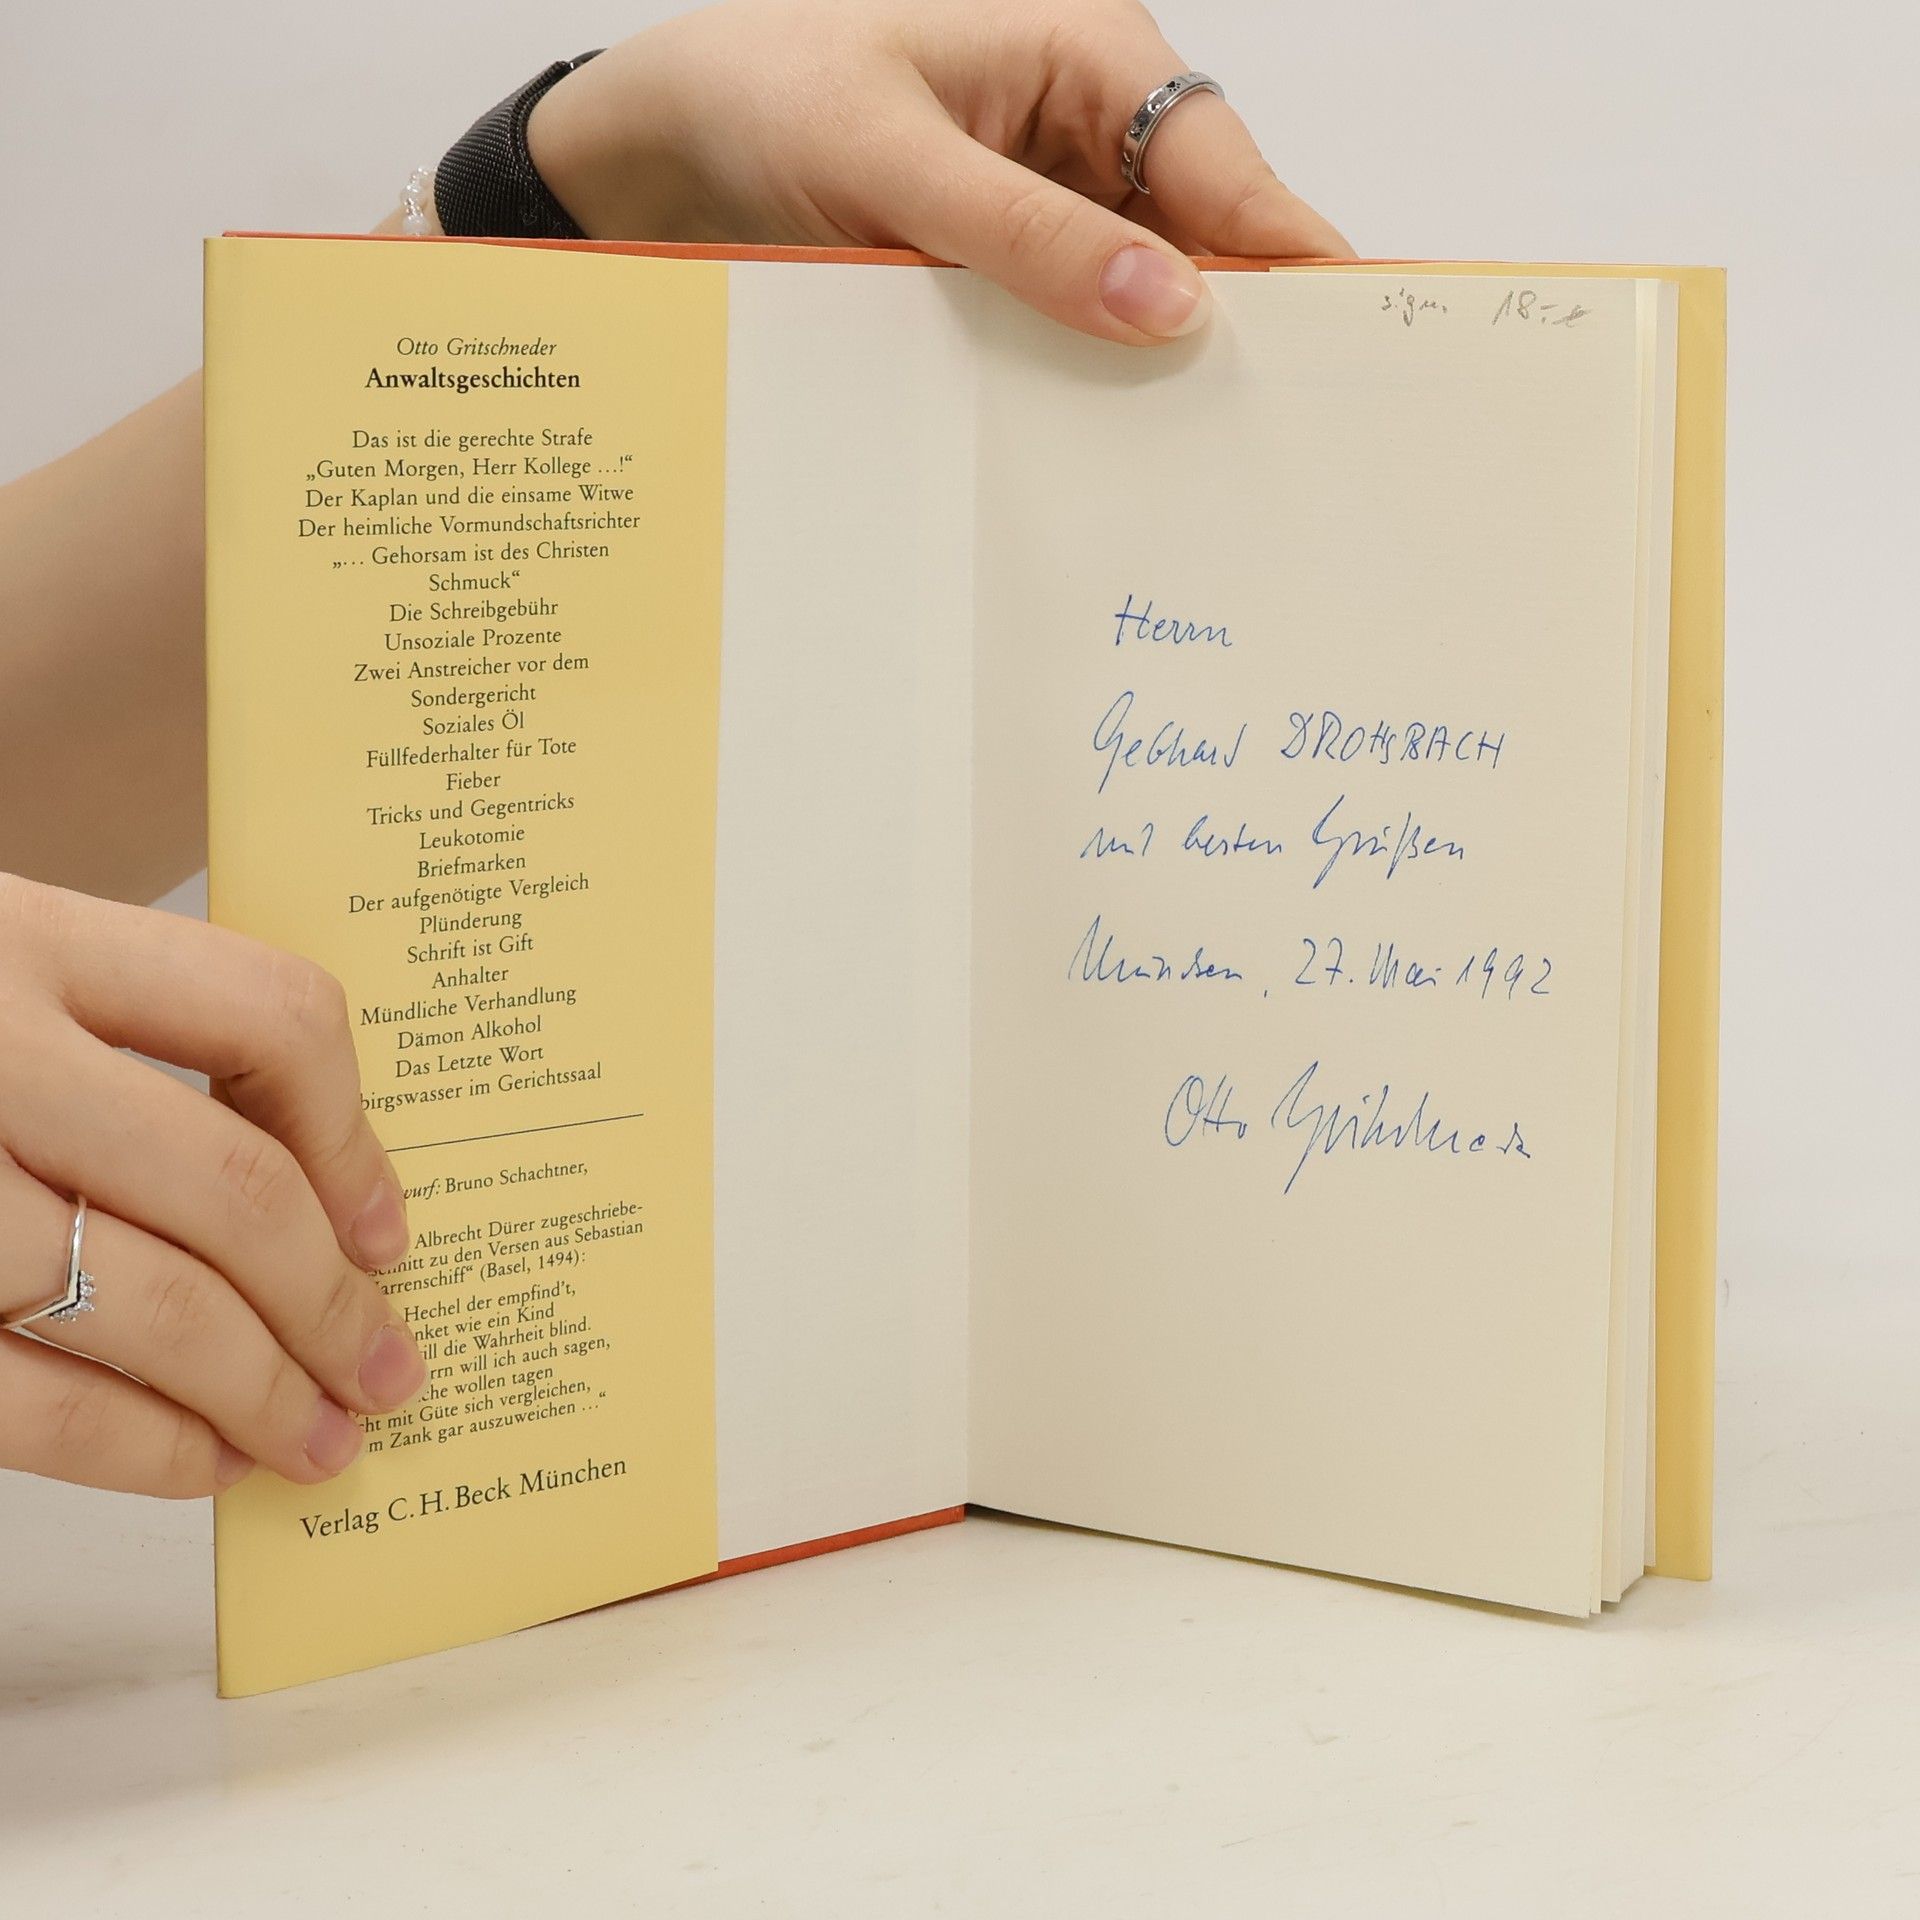 Otto Gritschneder
Anwaltsgeschichten
Das ist die gerechte Strafe
„Guten Morgen, Herr Kollege ...!“
Der Kaplan und die einsame Witwe
Der heimliche Vormundschaftsrichter
„... Gehorsam ist des Christen
Schmuck“
Die Schreibgebühr
Unsoziale Prozente
Zwei Anstreicher vor dem
Sondergericht
Soziales Öl
Füllfederhalter für Tote
Fieber
Tricks und Gegentricks
Leukotomie
Briefmarken
Der aufgenötigte Vergleich
Plünderung
Schrift ist Gift
Anhalter
Mündliche Verhandlung
Dämon Alkohol
Das Letzte Wort
birgswasser im Gerichtssaal
wurf: Bruno Schachtner,
Albrecht Dürer zugeschriebe-
schnitt zu den Versen aus Sebastian
arrenschiff“ (Basel, 1494):
Hechel der empfind't,
nket wie ein Kind
ill die Wahrheit blind.
rrn will ich auch sagen,
che wollen tagen
cht mit Güte sich vergleichen,
m Zank gar auszuweichen ...“
Verlag C.H.Beck München
sign. 18.-€
Herrn
Gebhard DROHSBACH
mit besten Grüßen
München, 27. Mai 1992
Otto Gritschneder